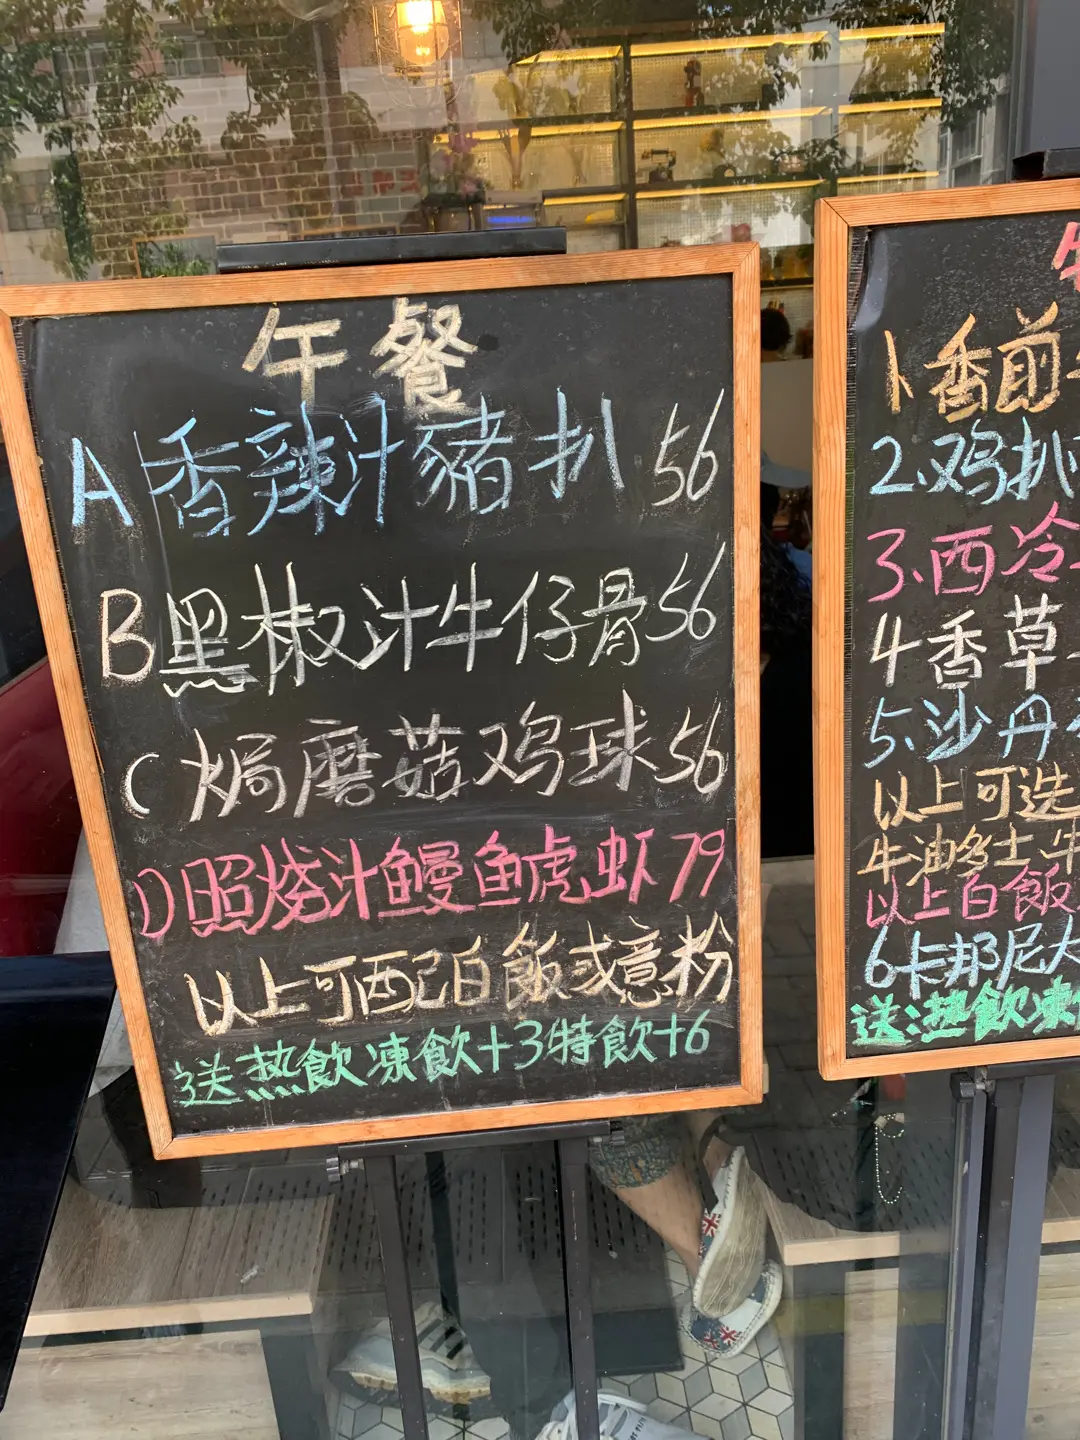 午餐
A 香辣汁豬扒 56
B 黑椒汁牛仔骨 56
C 焗磨菇鸡球 56
D 照烧汁鳗鱼虎虾 79
以上可西配白飯或意粉
送热飲 凍飲+3 特飲+6
1、香煎
2、鸡扒
3、西冷
4 香草
5、沙丹
以上可选
牛油多士 牛
以上白飯
6 卡邦尼大
送:热飲 凍